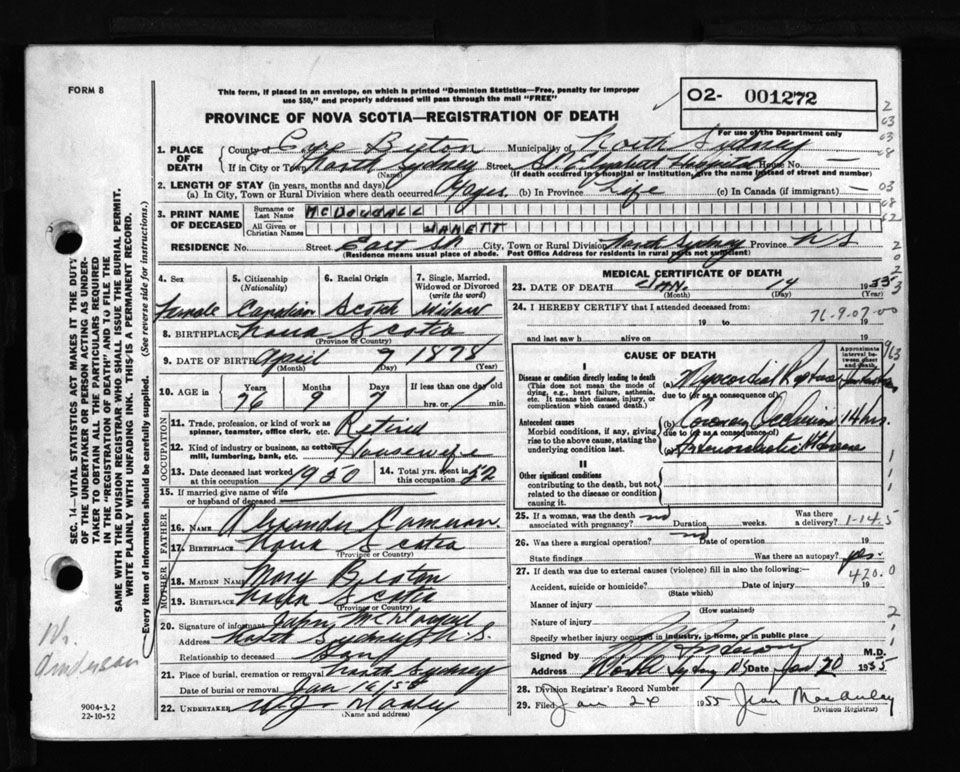 FORM 8
This form, if placed in an envelope, on which is printed "Dominion Statistics—Free, penalty for improper
use $50," and properly addressed will pass through the mail "FREE"
PROVINCE OF NOVA SCOTIA—REGISTRATION OF DEATH
O2- 001272
For use of the Department only
1. PLACE OF DEATH
County of Cape Breton Municipality of North Sydney
If in City or Town North Sydney Street St. Elizabeth Hospital House No. —
(Name) (If death occurred in a hospital or institution, give the name instead of street and number)
2. LENGTH OF STAY (in years, months and days)
(a) In City, Town or Rural Division where death occurred (b) In Province Life (c) In Canada (if immigrant) —
3. PRINT NAME OF DECEASED
Surname or Last Name McDOUGALL
All Given or Christian Names JANETT
RESIDENCE No. Street East St City, Town or Rural Division North Sydney Province N S
(Residence means usual place of abode. Post Office Address for residents in rural parts not sufficient)
4. Sex Female
5. Citizenship (Nationality) Canadian
6. Racial Origin Scotch
7. Single, Married, Widowed or Divorced (write the word) Widow
8. BIRTHPLACE Nova Scotia
(Province or Country)
9. DATE OF BIRTH April 7 1878
(Month) (Day) (Year)
10. AGE in Years Months Days If less than one day old
76 9 7 hrs. or min.
OCCUPATION
11. Trade, profession, or kind of work as spinner, teamster, office clerk, etc. Retired
12. Kind of industry or business, as cotton mill, lumbering, bank, etc. Housewife
13. Date deceased last worked at this occupation 1950
14. Total yrs. spent in this occupation 52
15. If married give name of wife or husband of deceased
FATHER
16. NAME Alexander Cameron
17. BIRTHPLACE Nova Scotia
(Province or Country)
MOTHER
18. MAIDEN NAME Mary
19. BIRTHPLACE Nova Scotia
(Province or Country)
20. Signature of informant McDougall
Address North Sydney N.S.
Relationship to deceased Son
21. Place of burial, cremation or removal North Sydney
Date of burial or removal Jan 16/55
22. UNDERTAKER W.J.
(Name and address)
MEDICAL CERTIFICATE OF DEATH
23. DATE OF DEATH JAN. 14 1955
(Month) (Day) (Year)
24. I HEREBY CERTIFY that I attended deceased from
19 to 19
76-9-07-00
and last saw h alive on 19
CAUSE OF DEATH
Approximate interval between onset and death
I
Disease or condition directly leading to death (a) Myocardial Rupture
(This does not mean the mode of dying, e.g., heart failure, asthenia, etc. It means the disease, injury, or complication which caused death.)
due to (or as a consequence of)
Antecedent causes (b) Coronary Occlusion 14 hrs.
Morbid conditions, if any, giving rise to the above cause, stating the underlying condition last.
due to (or as a consequence of)
(c)
II
Other significant conditions
contributing to the death, but not related to the disease or condition causing it.
25. If a woman, was the death associated with pregnancy? no Duration weeks. Was there a delivery? 1-14-5
26. Was there a surgical operation? no Date of operation 19
State findings Was there an autopsy? yes
27. If death was due to external causes (violence) fill in also the following:—
420.0
Accident, suicide or homicide? Date of injury 19
(State which)
Manner of injury
(How sustained)
Nature of injury
Specify whether injury occurred in industry, in home, or in public place
Signed by M.D.
Address North Sydney NS Date Jan 20 1955
28. Division Registrar's Record Number
29. Filed Jan 24 1955 Jean MacAulay
Division Registrar
SEC. 14—VITAL STATISTICS ACT MAKES IT THE DUTY
OF THE UNDERTAKER OR PERSON ACTING AS UNDER-
TAKER TO OBTAIN ALL THE PARTICULARS REQUIRED
IN THE "REGISTRATION OF DEATH" AND TO FILE THE
SAME WITH THE DIVISION REGISTRAR WHO SHALL ISSUE THE BURIAL PERMIT.
WRITE PLAINLY WITH UNFADING INK. THIS IS A PERMANENT RECORD.
Every item of Information should be carefully supplied. (See reverse side for instructions.)
Dr.
Anderson
9004-3.2
22-10-52